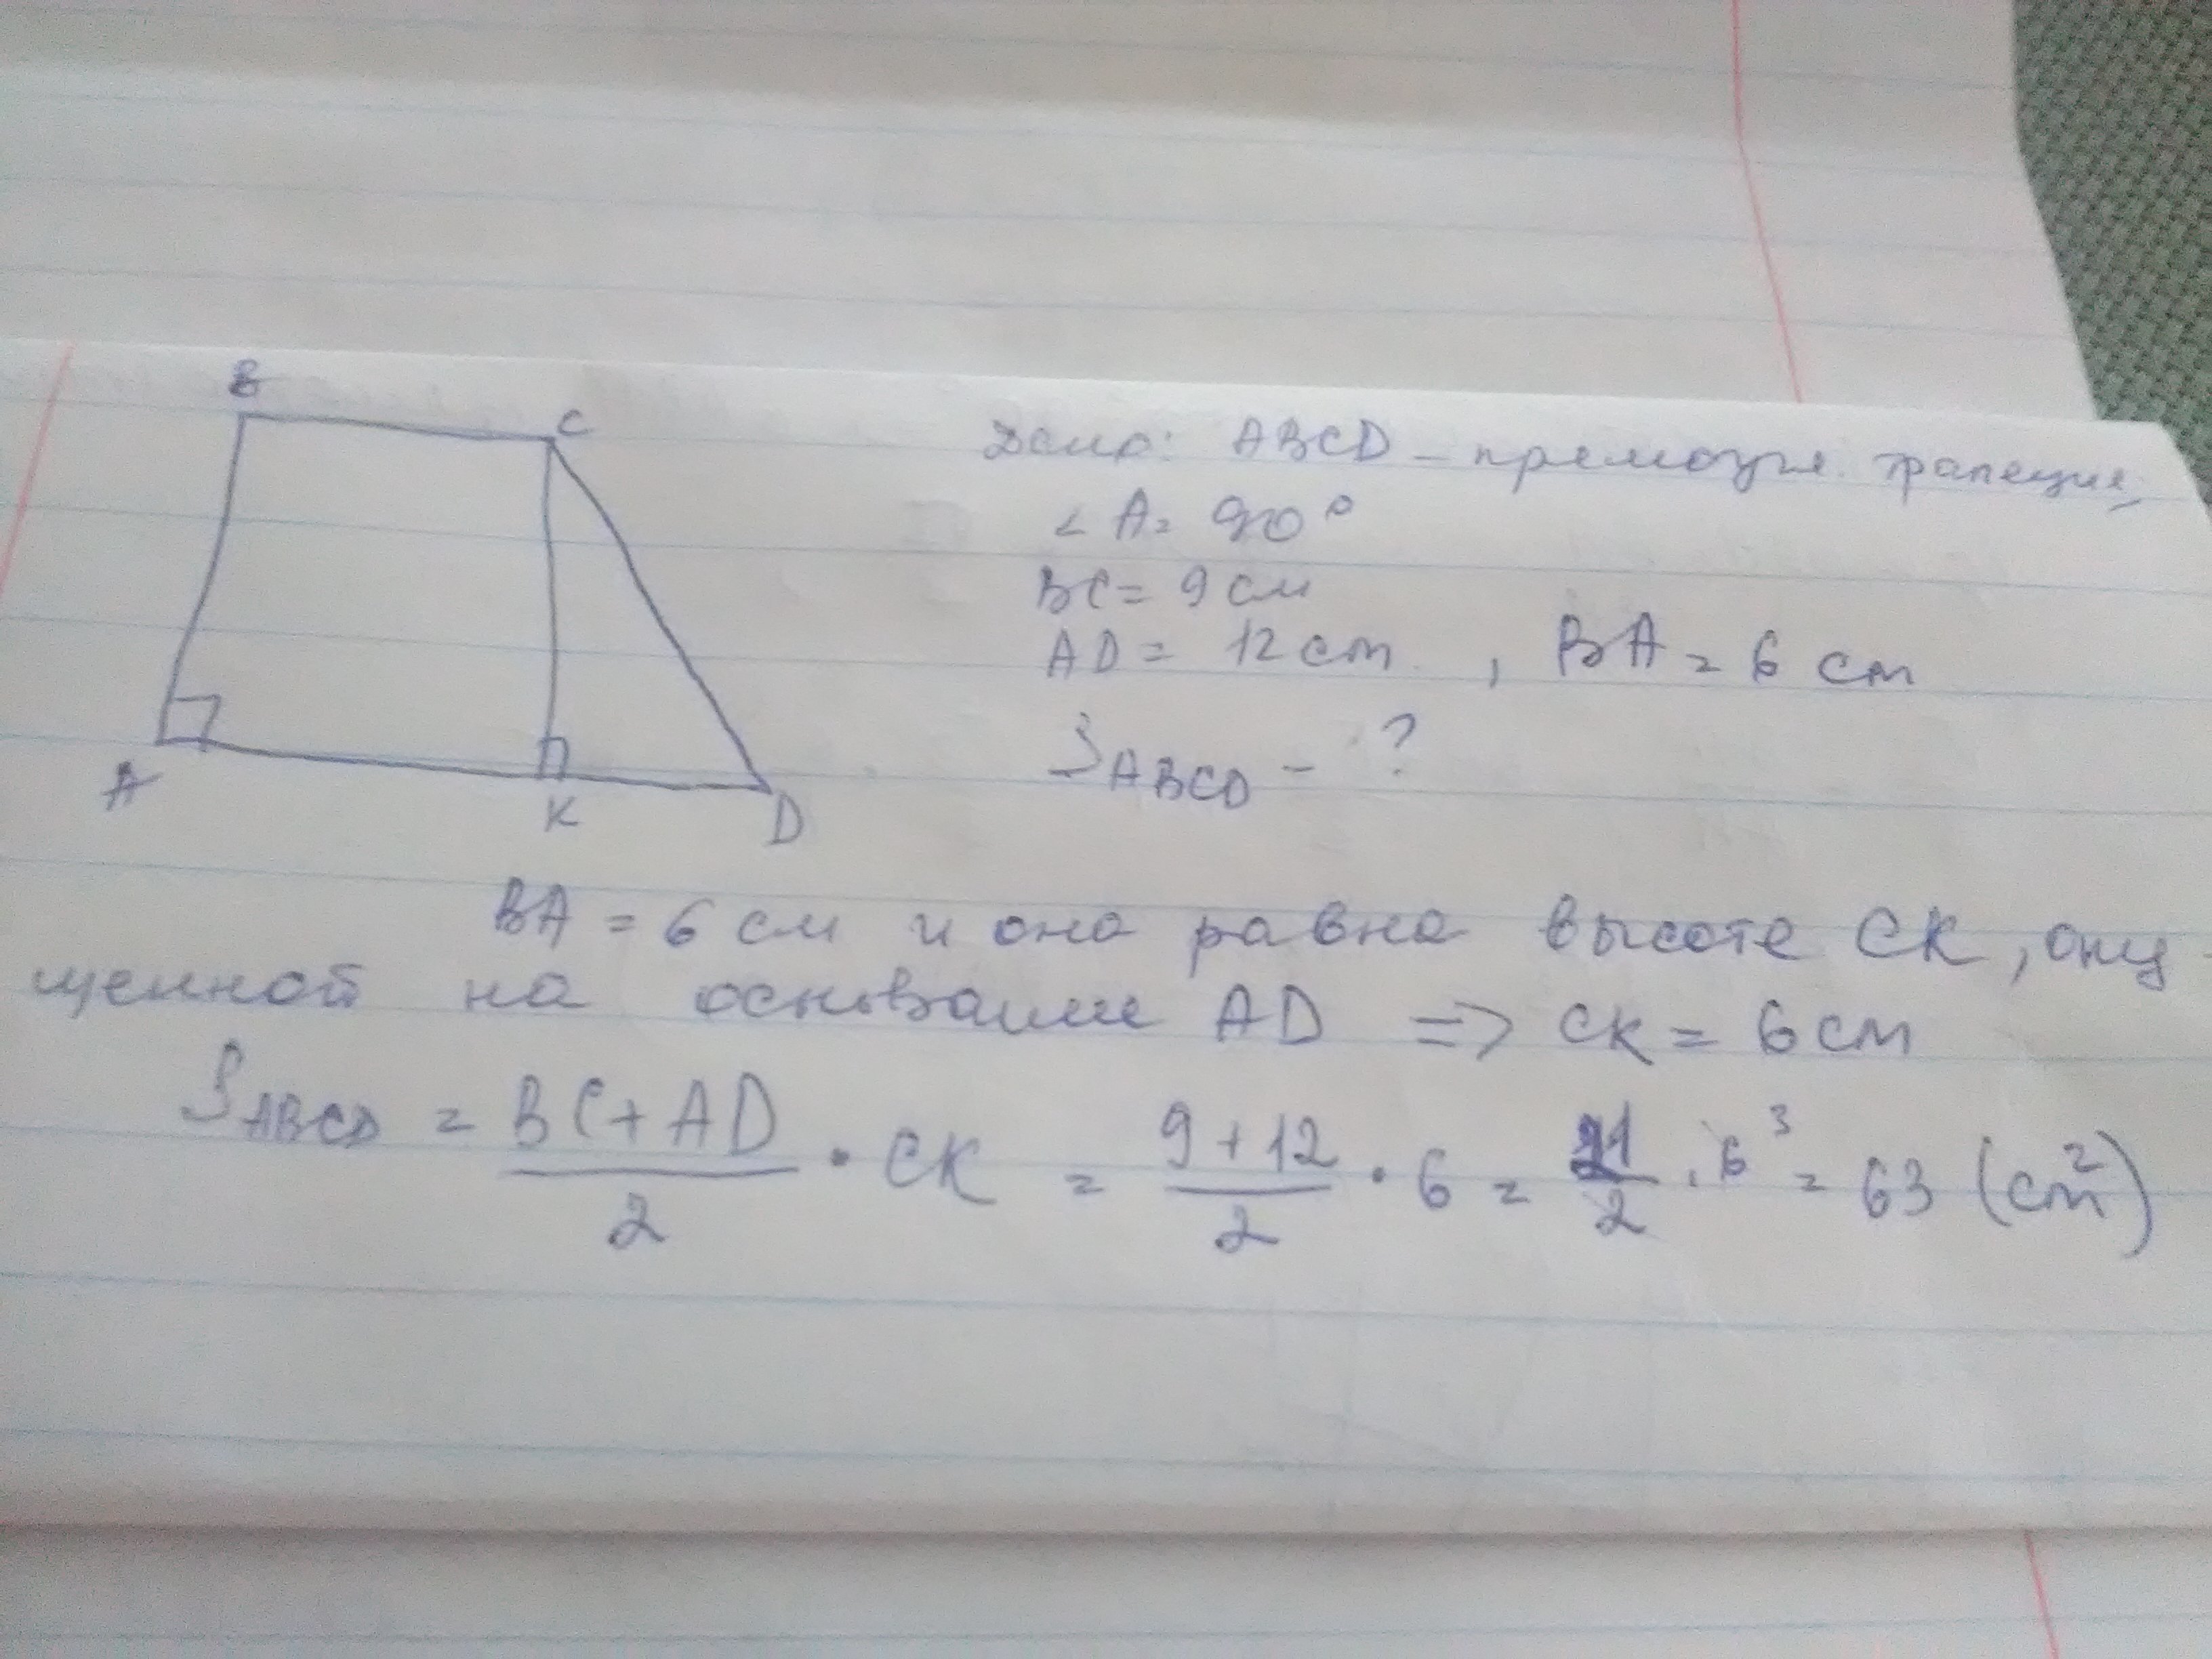 B
C
Дано: ABCD - прямоуг. трапеция,
< A = 90°
BC = 9 см
AD = 12 cm , BA = 6 cm
S ABCD - ?
A
K
D
BA = 6 см и она равна высоте CK, опу-
щенной на основание AD => CK = 6 cm
S ABCD = (BC + AD)/2 · CK = (9 + 12)/2 · 6 = 21/2 · 6³ = 63 (cm²)